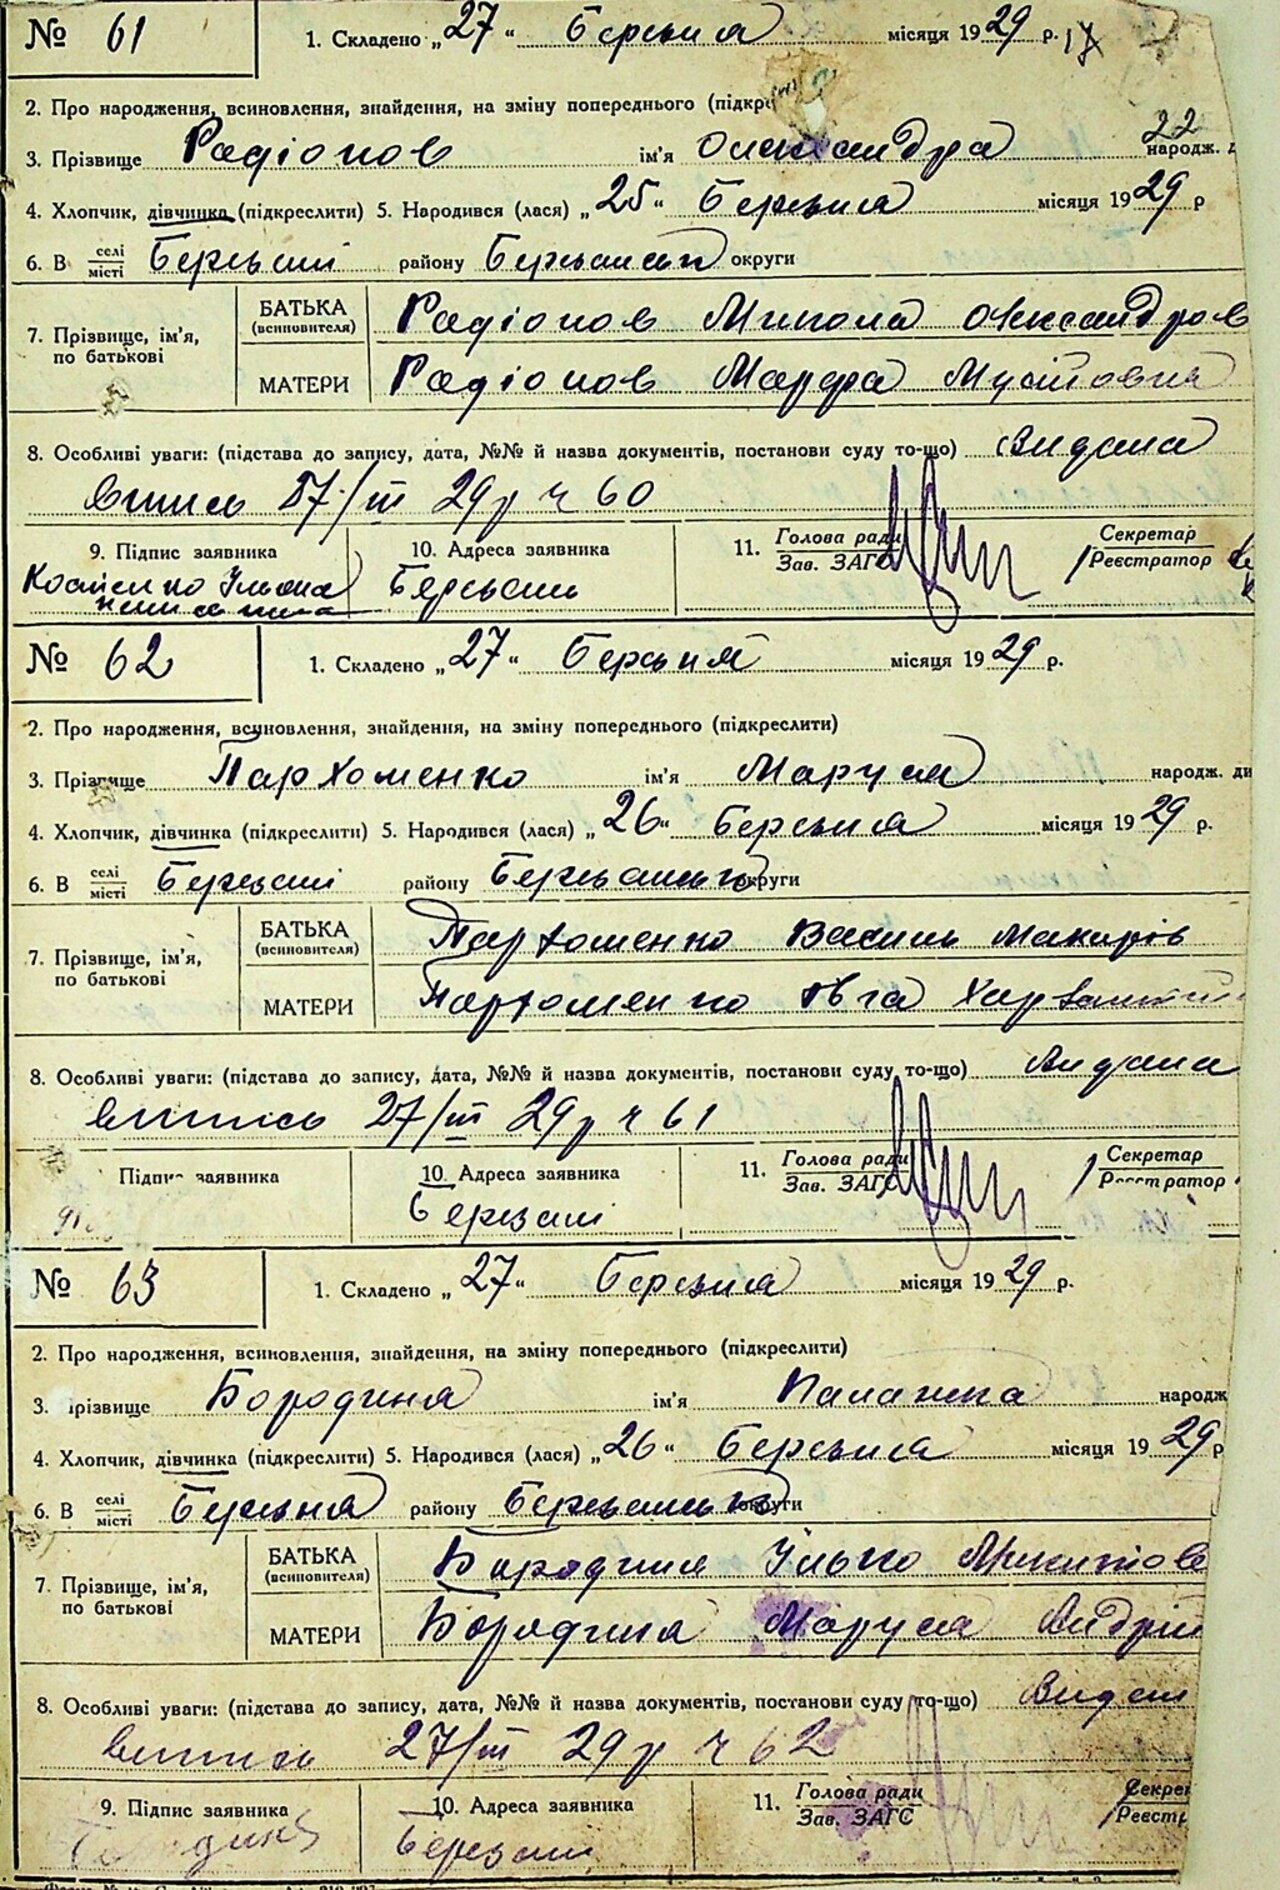 № 61 1. Складено „27“ Березня місяця 1929 р.
2. Про народження, всиновлення, знайдення, на зміну попереднього (підкре
22
3. Прізвище Радіонов ім'я Олександра народж. д
4. Хлопчик, дівчинка (підкреслити) 5. Народився (лася) „25“ Березня місяця 1929 р
6. В селі/місті Березані району Березанськ округи
7. Прізвище, ім'я, по батькові
БАТЬКА (всиновителя) Радіонов Микола Олександров
МАТЕРИ Радіонов Марфа
8. Особливі уваги: (підстава до запису, дата, №№ й назва документів, постанови суду то-що) Видана
впись 27/III 29 р ч 60
9. Підпис заявника 10. Адреса заявника 11. Голова ради/Зав. ЗАГС Секретар/Реєстратор
Костенко Ульяна Березань
неписьменна
№ 62 1. Складено „27“ Березня місяця 1929 р.
2. Про народження, всиновлення, знайдення, на зміну попереднього (підкреслити)
3. Прізвище Пархоменко ім'я Маруся народж. ди
4. Хлопчик, дівчинка (підкреслити) 5. Народився (лася) „26“ Березня місяця 1929 р.
6. В селі/місті Березані району Березанськ округи
7. Прізвище, ім'я, по батькові
БАТЬКА (всиновителя) Пархоменко Василь Макарів
МАТЕРИ Пархоменко
8. Особливі уваги: (підстава до запису, дата, №№ й назва документів, постанови суду то-що) Видана
впись 27/III 29 р ч 61
Підпис заявника 10. Адреса заявника 11. Голова ради/Зав. ЗАГС Секретар/Реєстратор
Березані
№ 63 1. Складено „27“ Березня місяця 1929 р.
2. Про народження, всиновлення, знайдення, на зміну попереднього (підкреслити)
3. Прізвище Бородиня ім'я Палажка народж
4. Хлопчик, дівчинка (підкреслити) 5. Народився (лася) „26“ Березня місяця 1929 р
6. В селі/місті Березня району Березанськ округи
7. Прізвище, ім'я, по батькові
БАТЬКА (всиновителя) Бородиня Ілько Микитов
МАТЕРИ Бородиня Маруся Андрій
8. Особливі уваги: (підстава до запису, дата, №№ й назва документів, постанови суду то-що) Видан
впись 27/III 29 р ч 62
9. Підпис заявника 10. Адреса заявника 11. Голова ради/Зав. ЗАГС Секре/Реєстр
Березані